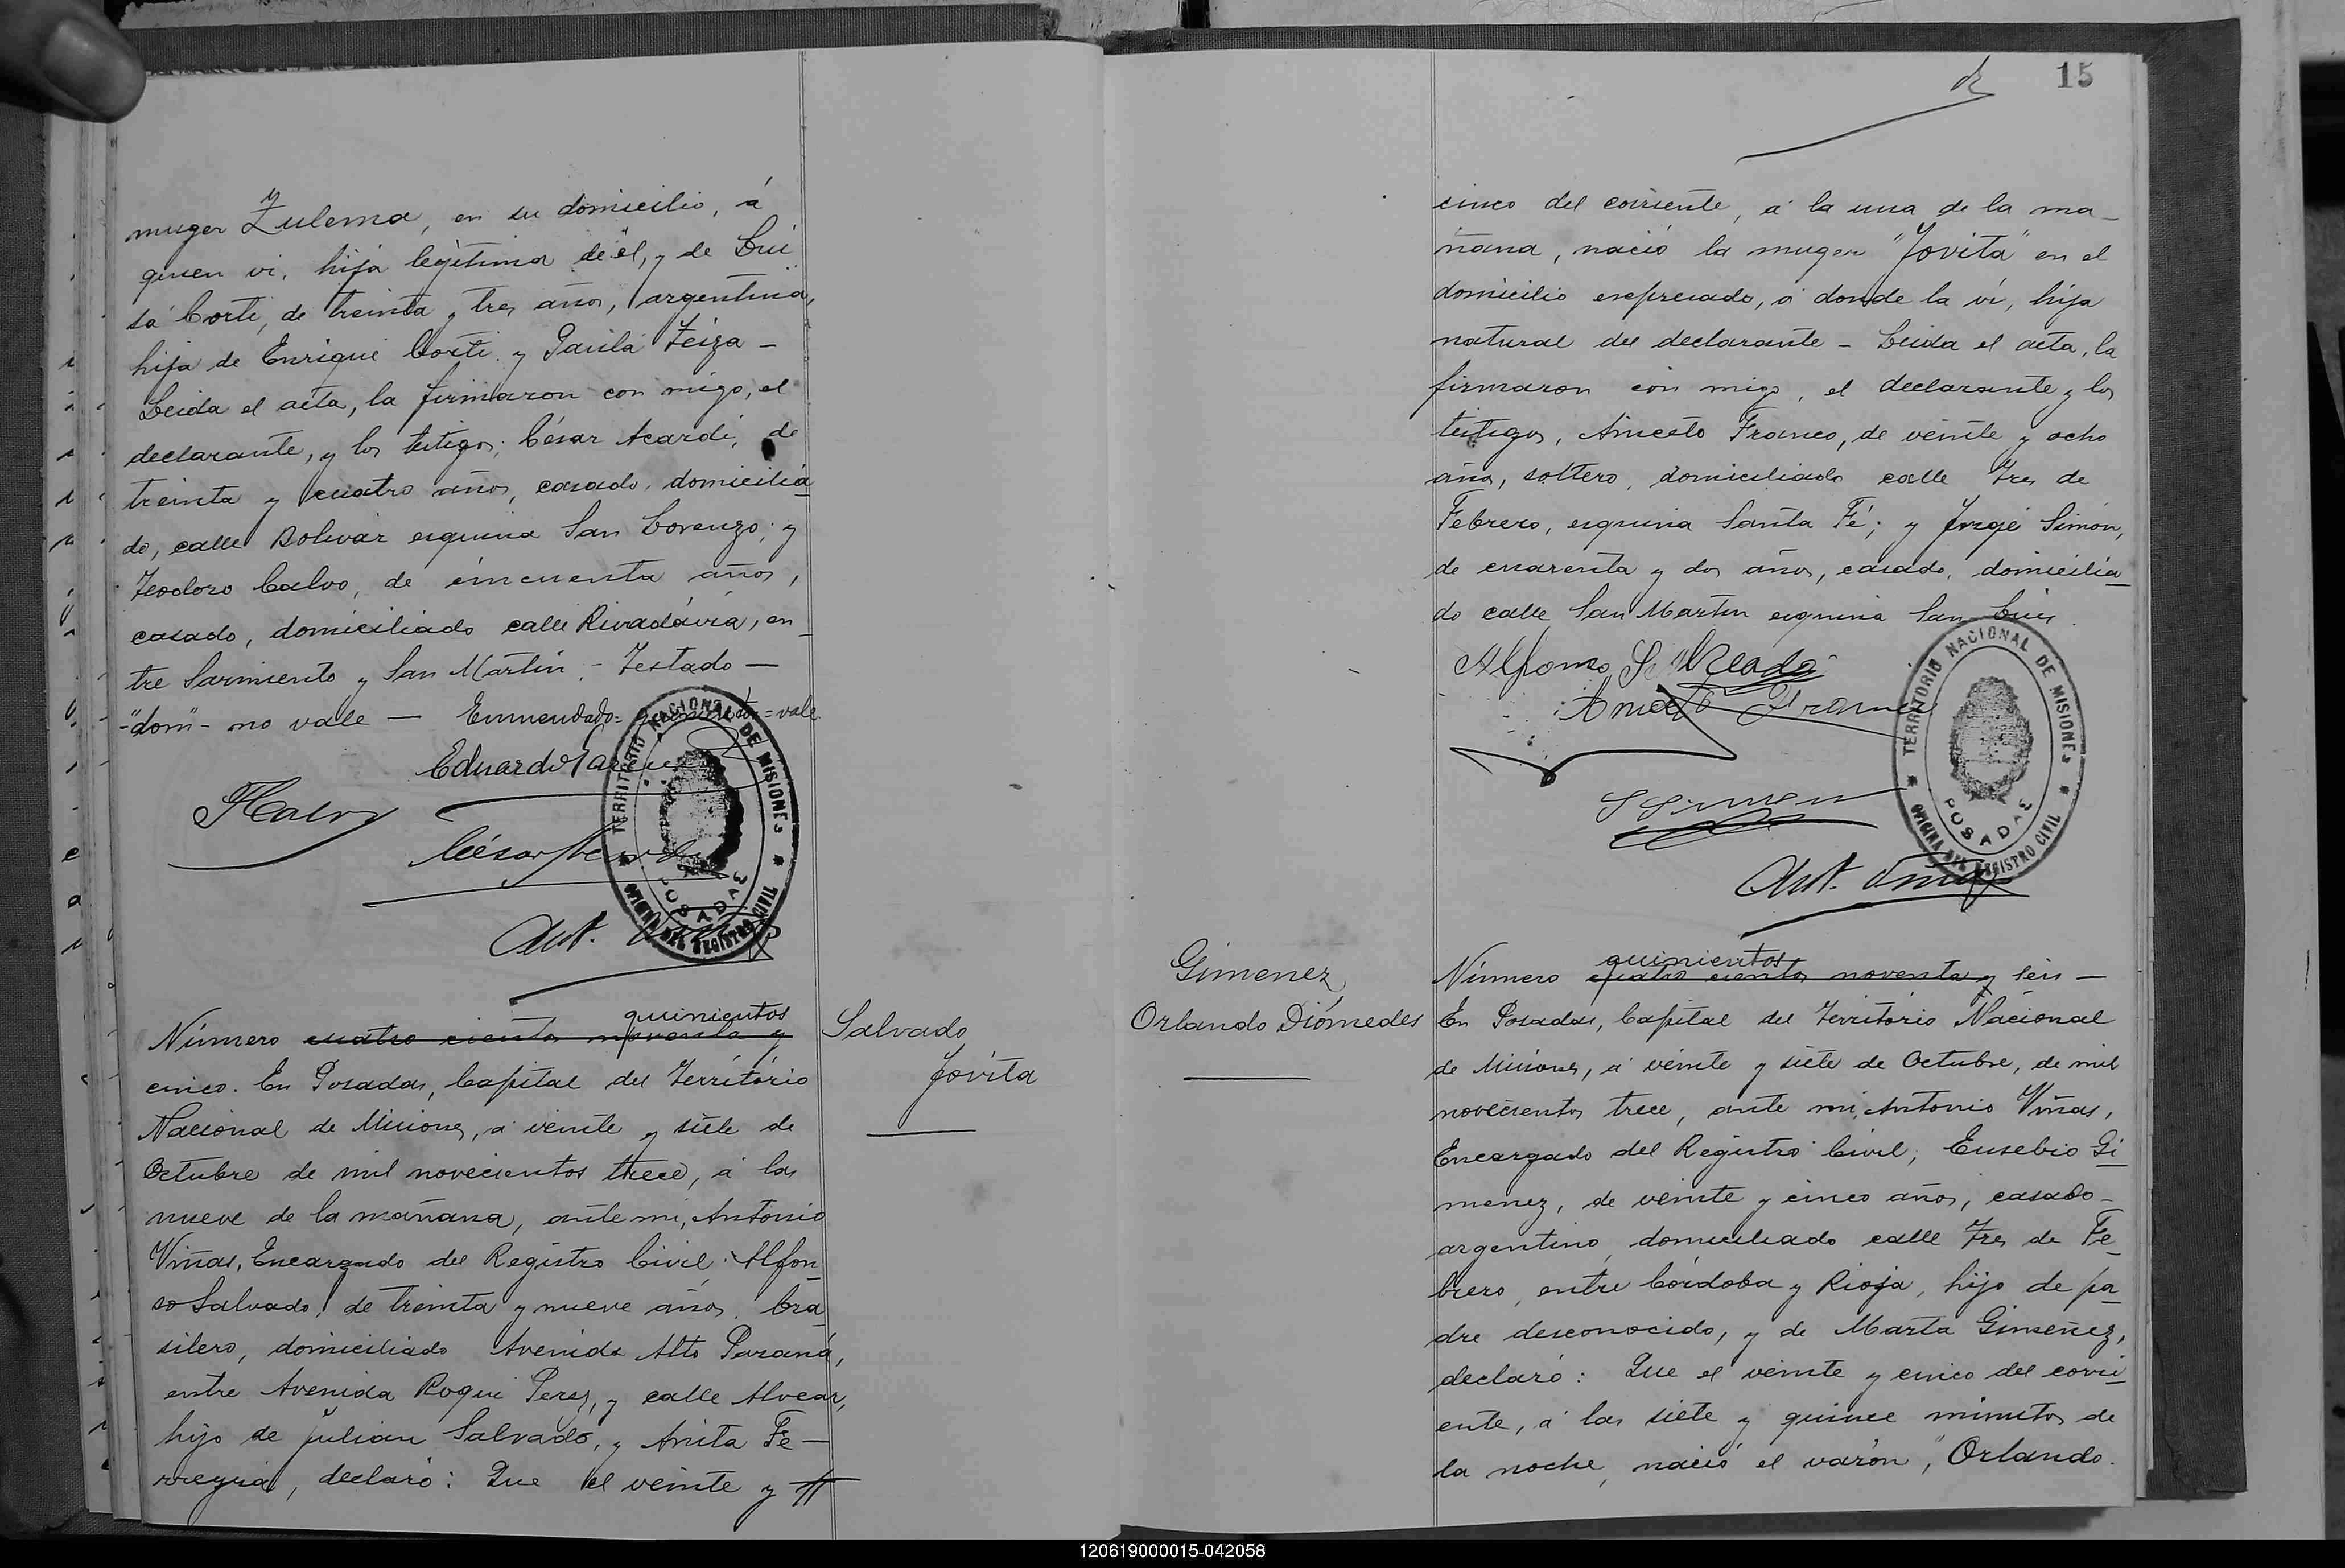 muger Zulema, en su domicilio, á
quien vi, hija legítima de él, y de Lui
sa Corti, de treinta y tres años, argentina,
hija de Enrique Corti y Paula Zeiza –
Leida el acta, la firmaron con migo, el
declarante, y los testigos; César Acardi, de
treinta y cuatro años, casado, domicilia
do, calle Bolivar esquina San Lorenzo; y
Teodoro Calvo, de cincuenta años,
casado, domiciliado calle Rivadavia, en
tre Sarmiento y San Martín – Testado –
"dom" – no vale – Enmendado = = vale
Eduardo
TCalvo
César Acardi
TERRITORIO NACIONAL DE MISIONES
POSADAS
OFICINA DEL REGISTRO CIVIL
Ant.
quinientos
Número cuatro cientos noventa y
cinco. En Posadas, Capital del Territorio
Nacional de Misiones, a veinte y siete de
Octubre de mil novecientos trece, á las
nueve de la mañana, ante mi, Antonio
Viñas, Encargado del Registro Civil: Alfon
so Salvado, de treinta y nueve años, bra
silero, domiciliado Avenida Alto Paraná,
entre Avenida Roque Perez, y calle Alvear,
hijo de Julian Salvado, y Anita Fe–
rreyra, declaró: Que el veinte y
Salvado
Jovita
15
cinco del corriente, á la una de la ma–
ñana, nació la muger "Jovita" en el
domicilio expresado, á donde la ví, hija
natural del declarante – Leida el acta, la
firmaron con migo, el declarante y los
testigos, Aniceto Franco, de veinte y ocho
años, soltero, domiciliado calle Tres de
Febrero, esquina Santa Fé; y Jorge Simón,
de cuarenta y dos años, casado, domicilia
do calle San Martin esquina San Luis.
Alfonso Salvado
Aniceto Franco
TERRITORIO NACIONAL DE MISIONES
POSADAS
OFICINA DEL REGISTRO CIVIL
Ant. Viñas
Gimenez
Orlando Diómedes
quinientos
Número cuatro cientos noventa y seis –
En Posadas, Capital del Territorio Nacional
de Misiones, á veinte y siete de Octubre, de mil
novecientos trece, ante mi, Antonio Viñas,
Encargado del Registro Civil, Eusebio Gi
menez, de veinte y cinco años, casado–
argentino, domiciliado calle Tres de Fe
brero, entre Córdoba y Rioja, hijo de pa
dre desconocido, y de Marta Gimenez,
declaró: Que el veinte y cinco del corri
ente, á las siete y quince minutos de
la noche, nació el varón, "Orlando
120619000015-042058